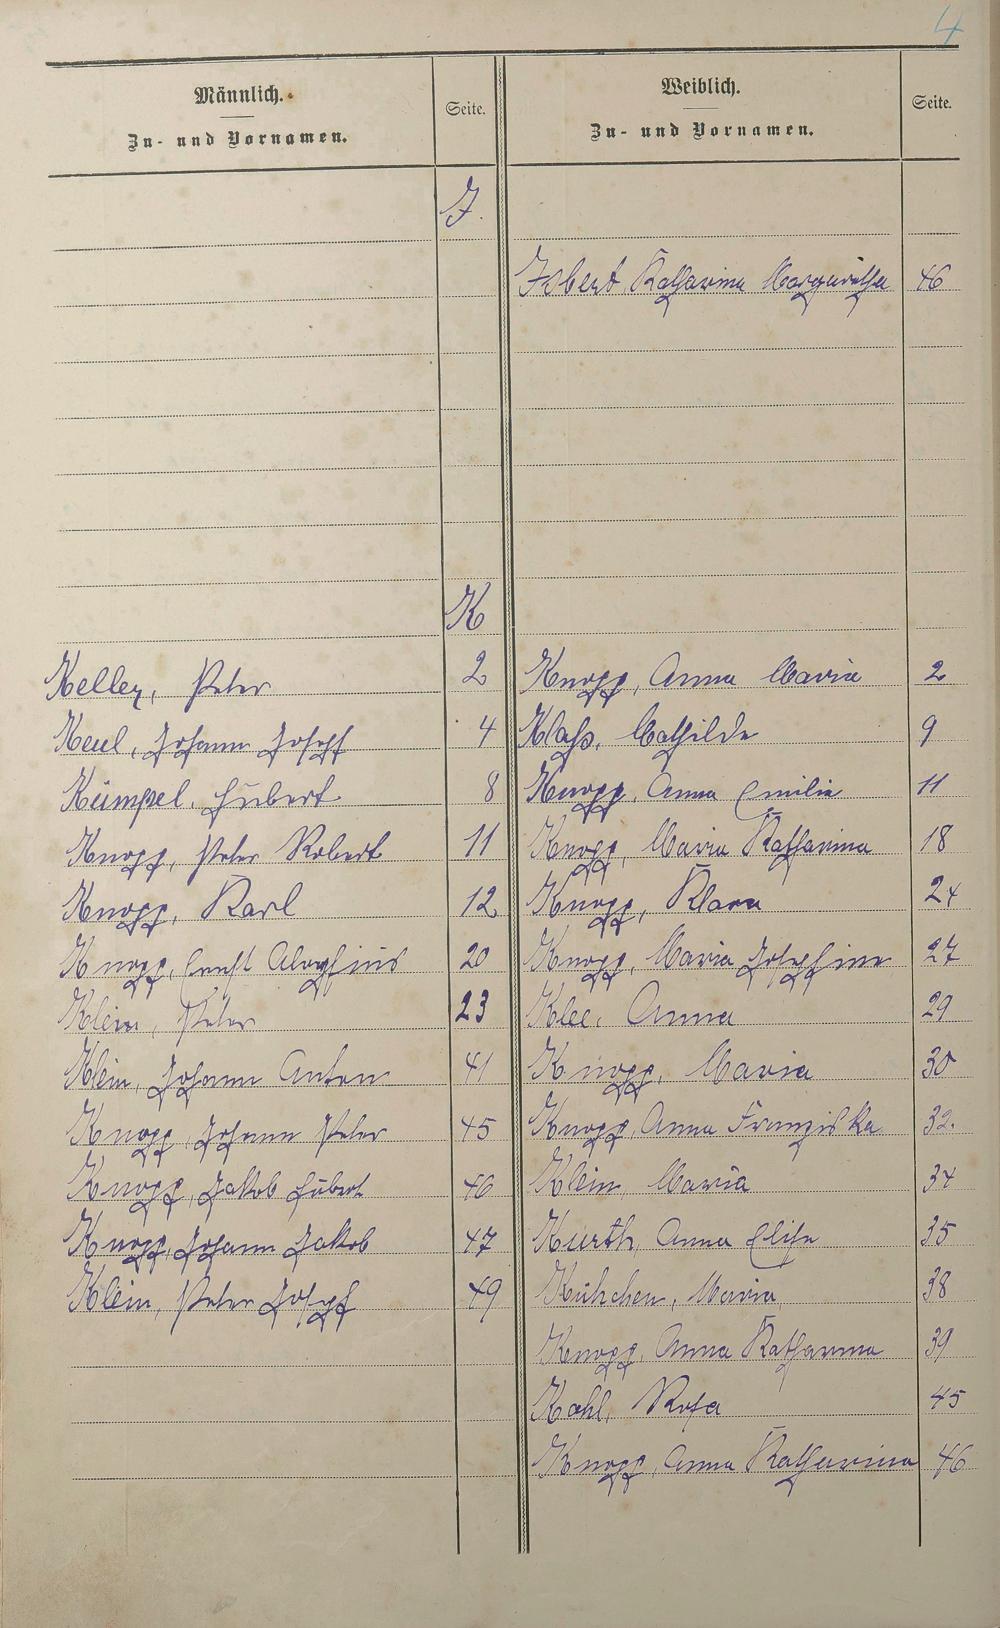 4
Männlich. Seite. Weiblich. Seite.
Zu- und Vornamen. Zu- und Vornamen.
J.
Isbert, Katharina Margaretha 46
K
Keller, Peter 2 Knopp, Anna Maria 2
Keul, Johann Joseph 4 Klaß, Mathilde 9
Kümpel, Hubert 8 Knopp, Anna Emilie 11
Knopp, Peter Robert 11 Knopp, Maria Katharina 18
Knopp, Karl 12 Knopp, Klara 24
Knopp, Ernst Aloysius 20 Knopp, Maria Josephine 27
Klein, Peter 23 Klee, Anna 29
Klein, Johann Anton 41 Knopp, Maria 30
Knopp, Johann Peter 45 Knopp, Anna Franziska 32.
Knopp, Jakob Hubert 46 Klein, Maria 34
Knopp, Johann Jakob 47 Kurth, Anna Elise 35
Klein, Peter Joseph 49 Kühchen, Maria 38
Knopp, Anna Katharina 39
Kahl, Rosa 45
Knopp, Anna Katharina 46